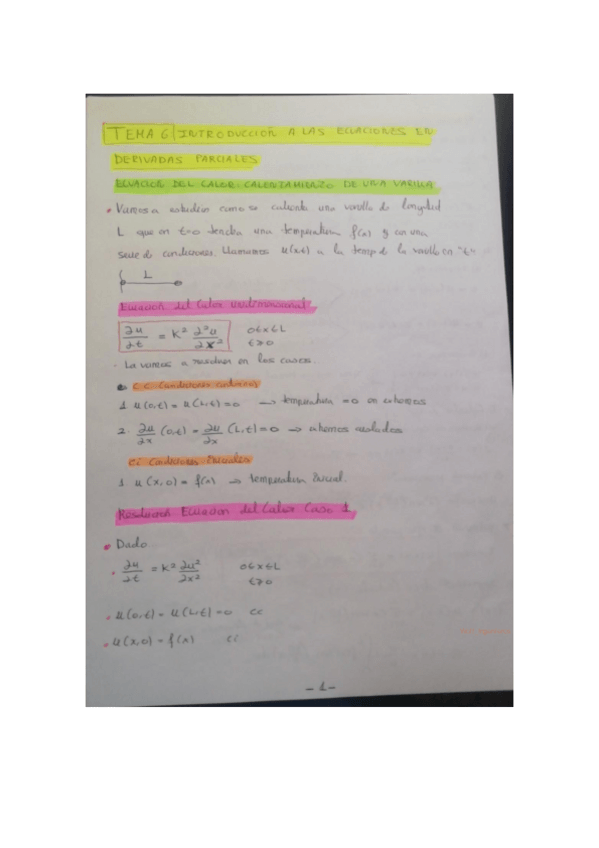 TEMA 6 INTRODUCCIÓN A LAS ECUACIONES EN
DERIVADAS PARCIALES
ECUACION DEL CALOR: CALENTAMIENTO DE UNA VARILLA
• Vamos a estudiar como se calienta una varilla de longitud
L que en t=0 tendra una temperatura f(x) y con una
serie de condiciones. Llamamos u(x,t) a la temp de la varilla en "t"
L
Ecuacion del Calor Unidimensional
∂u/∂t = K² ∂²u/∂x² 0≤x≤L
t≥0
· La vamos a resolver en los casos.
C.C. Condiciones
1 u(0,t) = u(L,t) = 0 → temperatura =0 en extremos
2. ∂u/∂x (0,t) = ∂u/∂x (L,t) = 0 → extremos aislados
ci Condiciones Iniciales
1 u(x,0) = f(x) → temperatura Inicial.
Resolucion Ecuacion del Calor Caso 1
• Dado
• ∂u/∂t = K² ∂u²/∂x² 0≤x≤L
t≥0
• u(0,t) = u(L,t) = 0 cc
• u(x,0) = f(x)
- 1 -